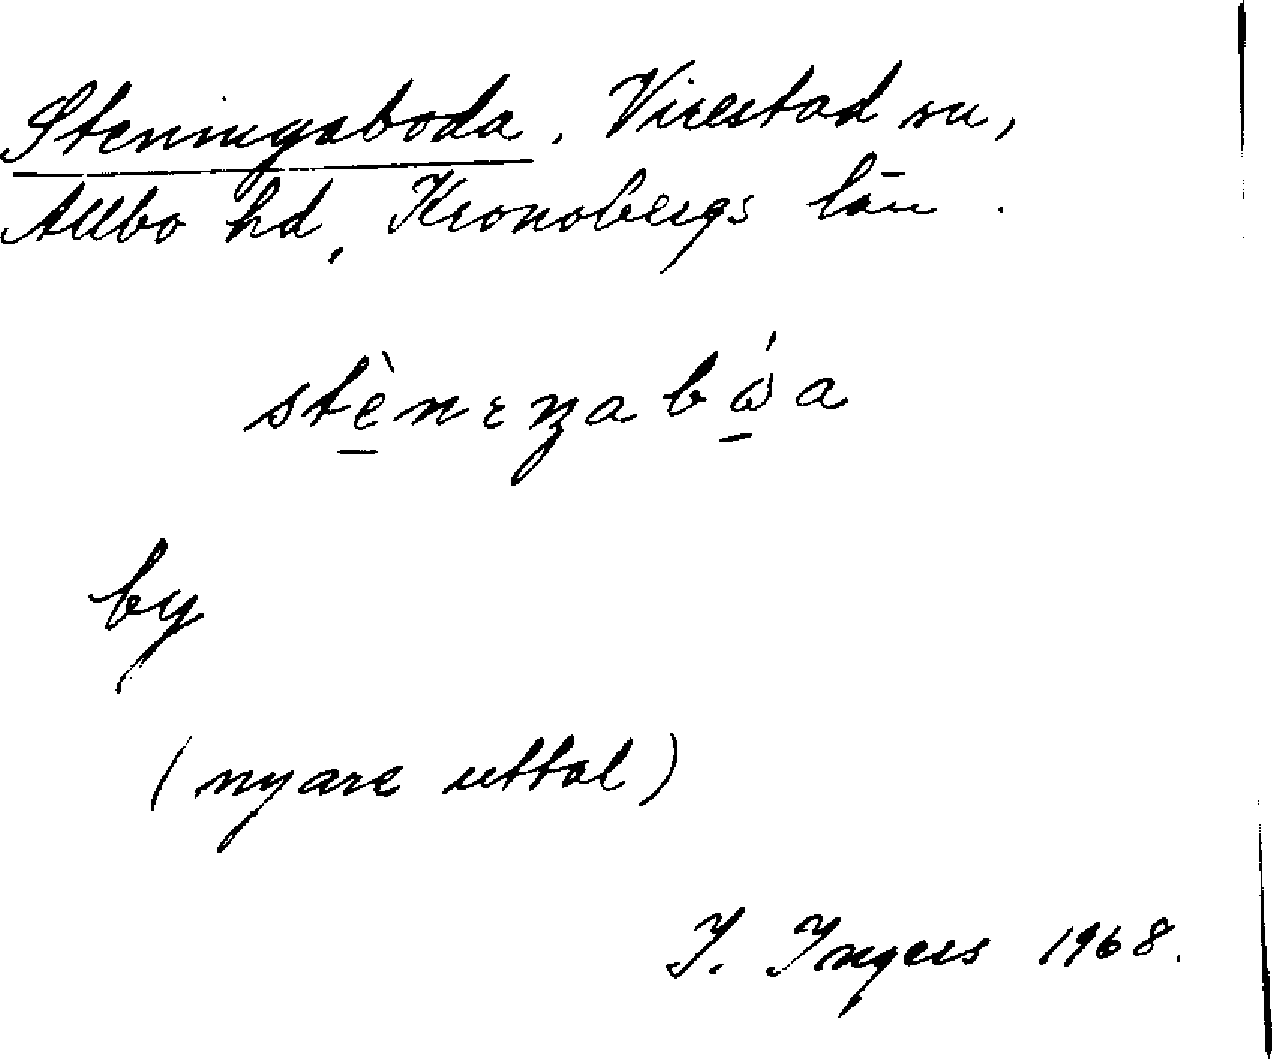 Steningaboda. Virestad sn,
Allbo hd, Kronobergs län.
stènɛŋabǿa
by
(nyare uttal)
I. Ingers 1968.